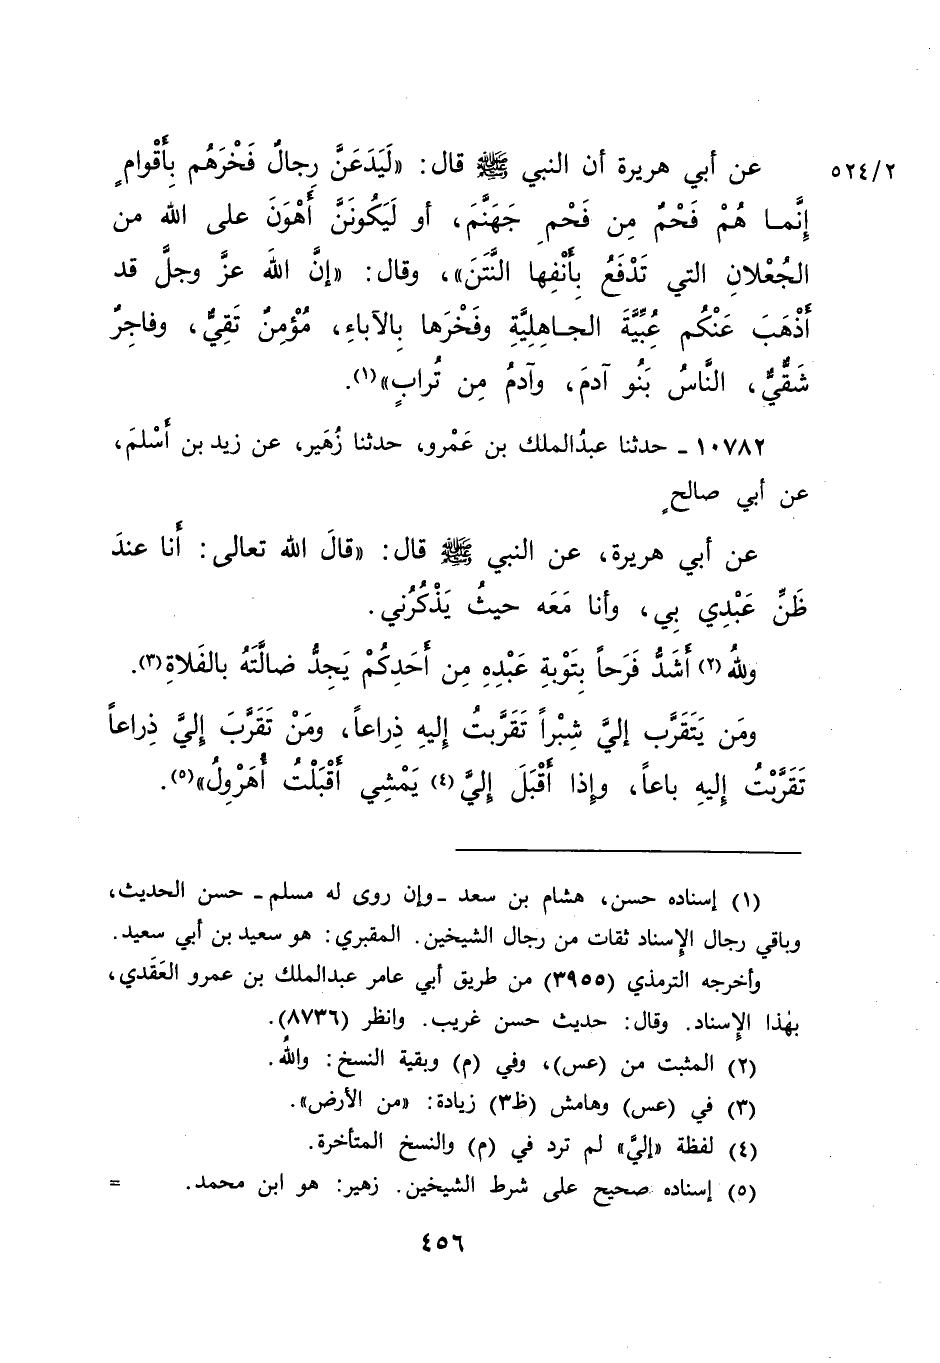 ٥٢٤/٢ عن أبي هريرة أن النبي ﷺ قال: «لَيَدَعَنَّ رِجالٌ فَخْرَهُم بِأَقْوامٍ
إِنَّما هُمْ فَحْمٌ مِن فَحْمِ جَهَنَّمَ، أو لَيَكُونَنَّ أَهْوَنَ على الله من
الجُعْلانِ التي تَدْفَعُ بِأَنْفِها النَّتَنَ»، وقال: «إنَّ اللهَ عزَّ وجلَّ قد
أَذْهَبَ عَنْكُم عُبِّيَّةَ الجـاهِلِيَّةِ وفَخْرَها بِالآباءِ، مُؤْمِنٌ تَقِيٌّ، وفاجِرٌ
شَقِيٌّ، النَّاسُ بَنُو آدمَ، وآدمُ مِن تُرابٍ»(١).
١٠٧٨٢ ـ حدثنا عبدُالملك بن عَمْرو، حدثنا زُهَير، عن زيد بن أَسْلمَ،
عن أبي صالحٍ
عن أبي هريرة، عن النبي ﷺ قال: «قالَ الله تعالى: أَنا عندَ
ظَنِّ عَبْدِي بِي، وأنا مَعَه حيثُ يَذْكُرُني.
وللهُ(٢) أَشَدُّ فَرَحاً بِتَوْبةِ عَبْدِهِ مِن أَحَدِكُمْ يَجِدُ ضالَّتَهُ بالفَلاةِ(٣).
ومَن يَتَقَرَّب إليَّ شِبْراً تَقَرَّبتُ إِليهِ ذِراعاً، ومَنْ تَقَرَّبَ إِليَّ ذِراعاً
تَقَرَّبْتُ إِليهِ باعاً، وإِذا أَقْبَلَ إِليَّ(٤) يَمْشِي أَقْبَلْتُ أُهَرْوِلُ»(٥).
(١) إسناده حسن، هشام بن سعد ـ وإن روى له مسلم ـ حسن الحديث،
وباقي رجال الإسناد ثقات من رجال الشيخين. المقبري: هو سعيد بن أبي سعيد.
وأخرجه الترمذي (٣٩٥٥) من طريق أبي عامر عبدالملك بن عمرو العَقَدي،
بهٰذا الإسناد. وقال: حديث حسن غريب. وانظر (٨٧٣٦).
(٢) المثبت من (عس)، وفي (م) وبقية النسخ: واللهُ.
(٣) في (عس) وهامش (ظ٣) زيادة: «من الأرض».
(٤) لفظة «إليَّ» لم ترد في (م) والنسخ المتأخرة.
(٥) إسناده صحيح على شرط الشيخين. زهير: هو ابن محمد. =
٤٥٦